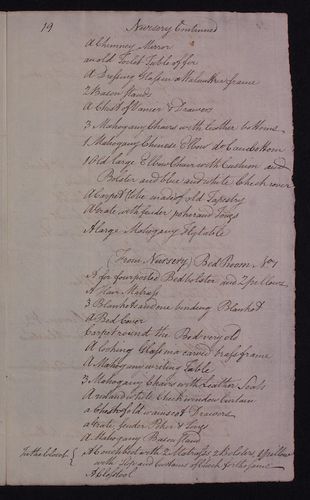 19 Nursery Continued
A Chimney Mirror
an old Toilet Table of fir
A Dressing Glass in a Walnutree frame
2 Bason Stands
A Chest of Drawers
3 Mahogany Chairs with Leather bottoms
1 Mahogany Chinese Elbow do Cane bottom
1 Old large Elbow Chair with Cushion and
Bolster and blue and white Check cover
A Carpet to be made of old Tapestry
A Grate with fender poker and Tongs
A Large Mahogany table
(From Nursery) Bed Room No 1
A fir fourposted Bed bolster and 2 pillows
A Hair Matrass
3 Blankets and one binding Blanket
A Bed Cover
Carpet round the Bed very old
A looking Glass in a carved brass frame
A Mahogany writing Table
3 Mahogany Chairs with Leather Seats
A and white Check window Curtain
a Chest of old wainscot Drawers
a Grate, fender Poker & Tongs
A Mahogany Bason Stand
In the Closet { A Couch bed with 2 Matrasses 2 Bolsters, 1 pillow
with Top and curtains of Check for the same
A Closstool